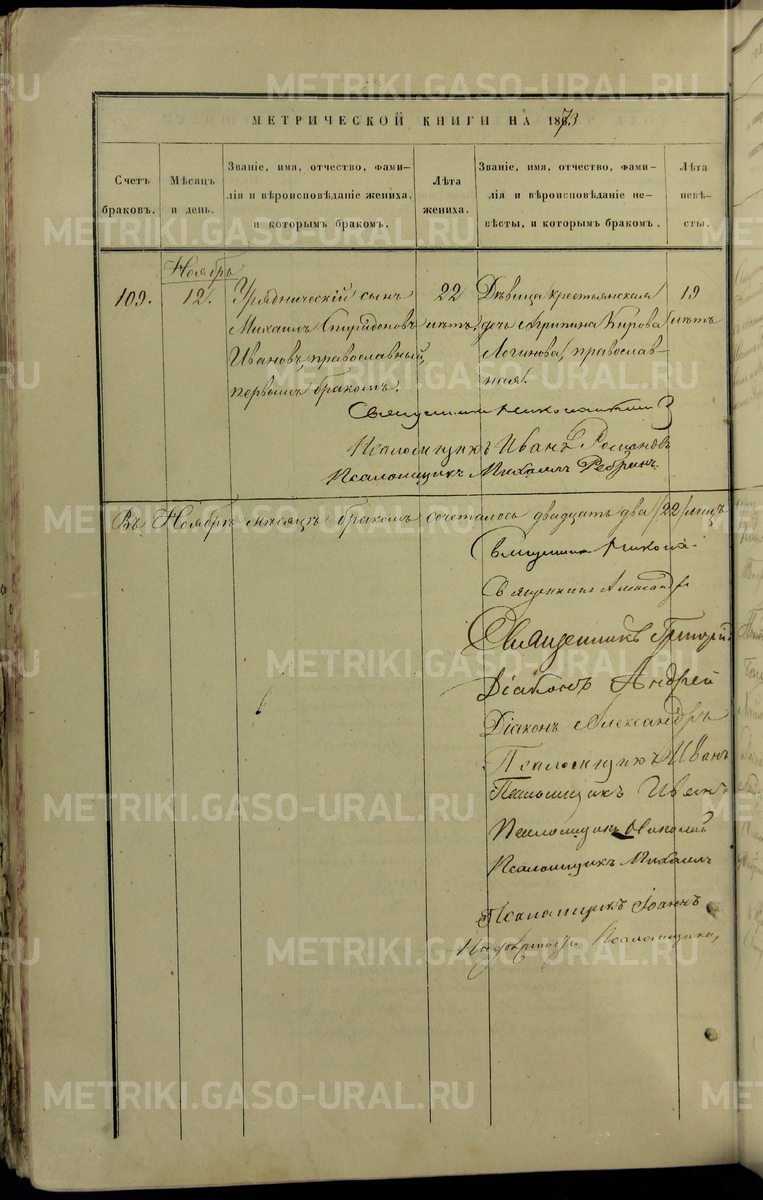 METRIKI.GASO-URAL.RU
МЕТРИЧЕСКОЙ КНИГИ НА 1873
Счетъ браковъ.
Мѣсяцъ и день.
Званіе, имя, отчество, фами-
лія и вѣроисповѣданіе жениха,
и которымъ бракомъ.
Лѣта жениха.
Званіе, имя, отчество, фами-
лія и вѣроисповѣданіе не-
вѣсты, и которымъ бракомъ.
Лѣта невѣ-
сты.
Ноябрь
109.
12.
Урядническій сынъ
Михаилъ Спиридоновъ
Ивановъ, православный,
первымъ бракомъ.
22
лѣтъ.
Дѣвица крестьянская
дочь Агрипина Кирова
Логинова, православ-
ная.
19
лѣтъ
Священникъ
Псаломщикъ Иванъ
Псаломщикъ Михаилъ Ребринъ.
Въ Ноябрѣ мѣсяцѣ бракомъ сочеталось двадцать два /22/ лицъ
Священникъ
Священникъ Александръ
Священникъ Григорій
Діаконъ Андрей
Діаконъ Александръ
Псаломщикъ Иванъ
Псаломщикъ Иванъ
Псаломщикъ Николай
Псаломщикъ Михаилъ
Псаломщикъ Іоаннъ
Псаломщика,